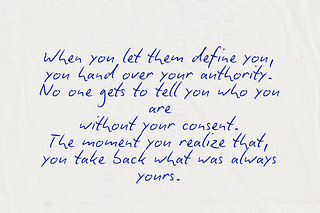 When you let them define you,
you hand over your authority.
No one gets to tell you who you
are
without your consent.
The moment you realize that,
you take back what was always
yours.